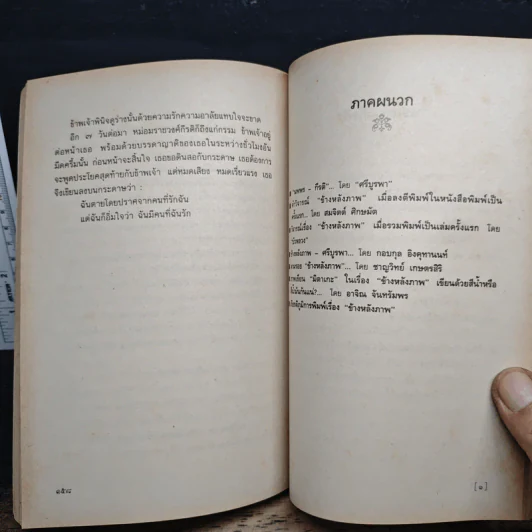 ข้าพเจ้าพินิจดูร่างนั้นด้วยความรักความอาลัยแทบใจจะขาด
อีก ๗ วันต่อมา หม่อมราชวงค์กีรติก็ถึงแก่กรรม ข้าพเจ้าอยู่
ต่อหน้าเธอ พร้อมด้วยบรรดาญาติของเธอในระหว่างชั่วโมงอัน
มืดครึ้มนั้น ก่อนหน้าจะสิ้นใจ เธอขอดินสอกับกระดาษ เธอต้องการ
จะพูดประโยคสุดท้ายกับข้าพเจ้า แต่หมดเสียง หมดเรี่ยวแรง เธอ
จึงเขียนลงบนกระดาษว่า :
ฉันตายโดยปราศจากคนที่รักฉัน
แต่ฉันก็อิ่มใจว่า ฉันมีคนที่ฉันรัก
๑๕๘
ภาคผนวก
"นพพร - กีรติ"... โดย "ศรีบูรพา"
วิจารณ์ "ข้างหลังภาพ" เมื่อลงตีพิมพ์ในหนังสือพิมพ์เป็น
ครั้งแรก... โดย สมจิตต์ ศิกษมัต
วิจารณ์เรื่อง "ข้างหลังภาพ" เมื่อรวมพิมพ์เป็นเล่มครั้งแรก โดย
ข้างหลังภาพ - ศรีบูรพา... โดย กอบกุล อิงคุทานนท์
"ข้างหลังภาพ"... โดย ชาญวิทย์ เกษตรศิริ
ภาพเขียน "มิตาเกะ" ในเรื่อง "ข้างหลังภาพ" เขียนด้วยสีน้ำหรือ
สีน้ำมันกันแน่?... โดย อาจิณ จันทรัมพร
บรรณานุกรมการพิมพ์เรื่อง "ข้างหลังภาพ"
[ ๑ ]